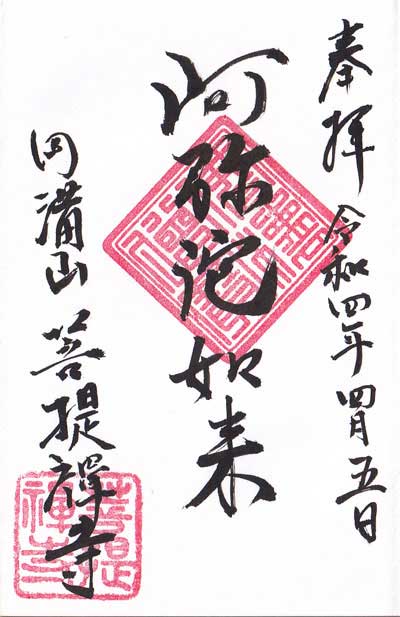 奉拝 令和四年四月五日
阿弥陀如来
円満山 菩提禅寺
菩提禅寺